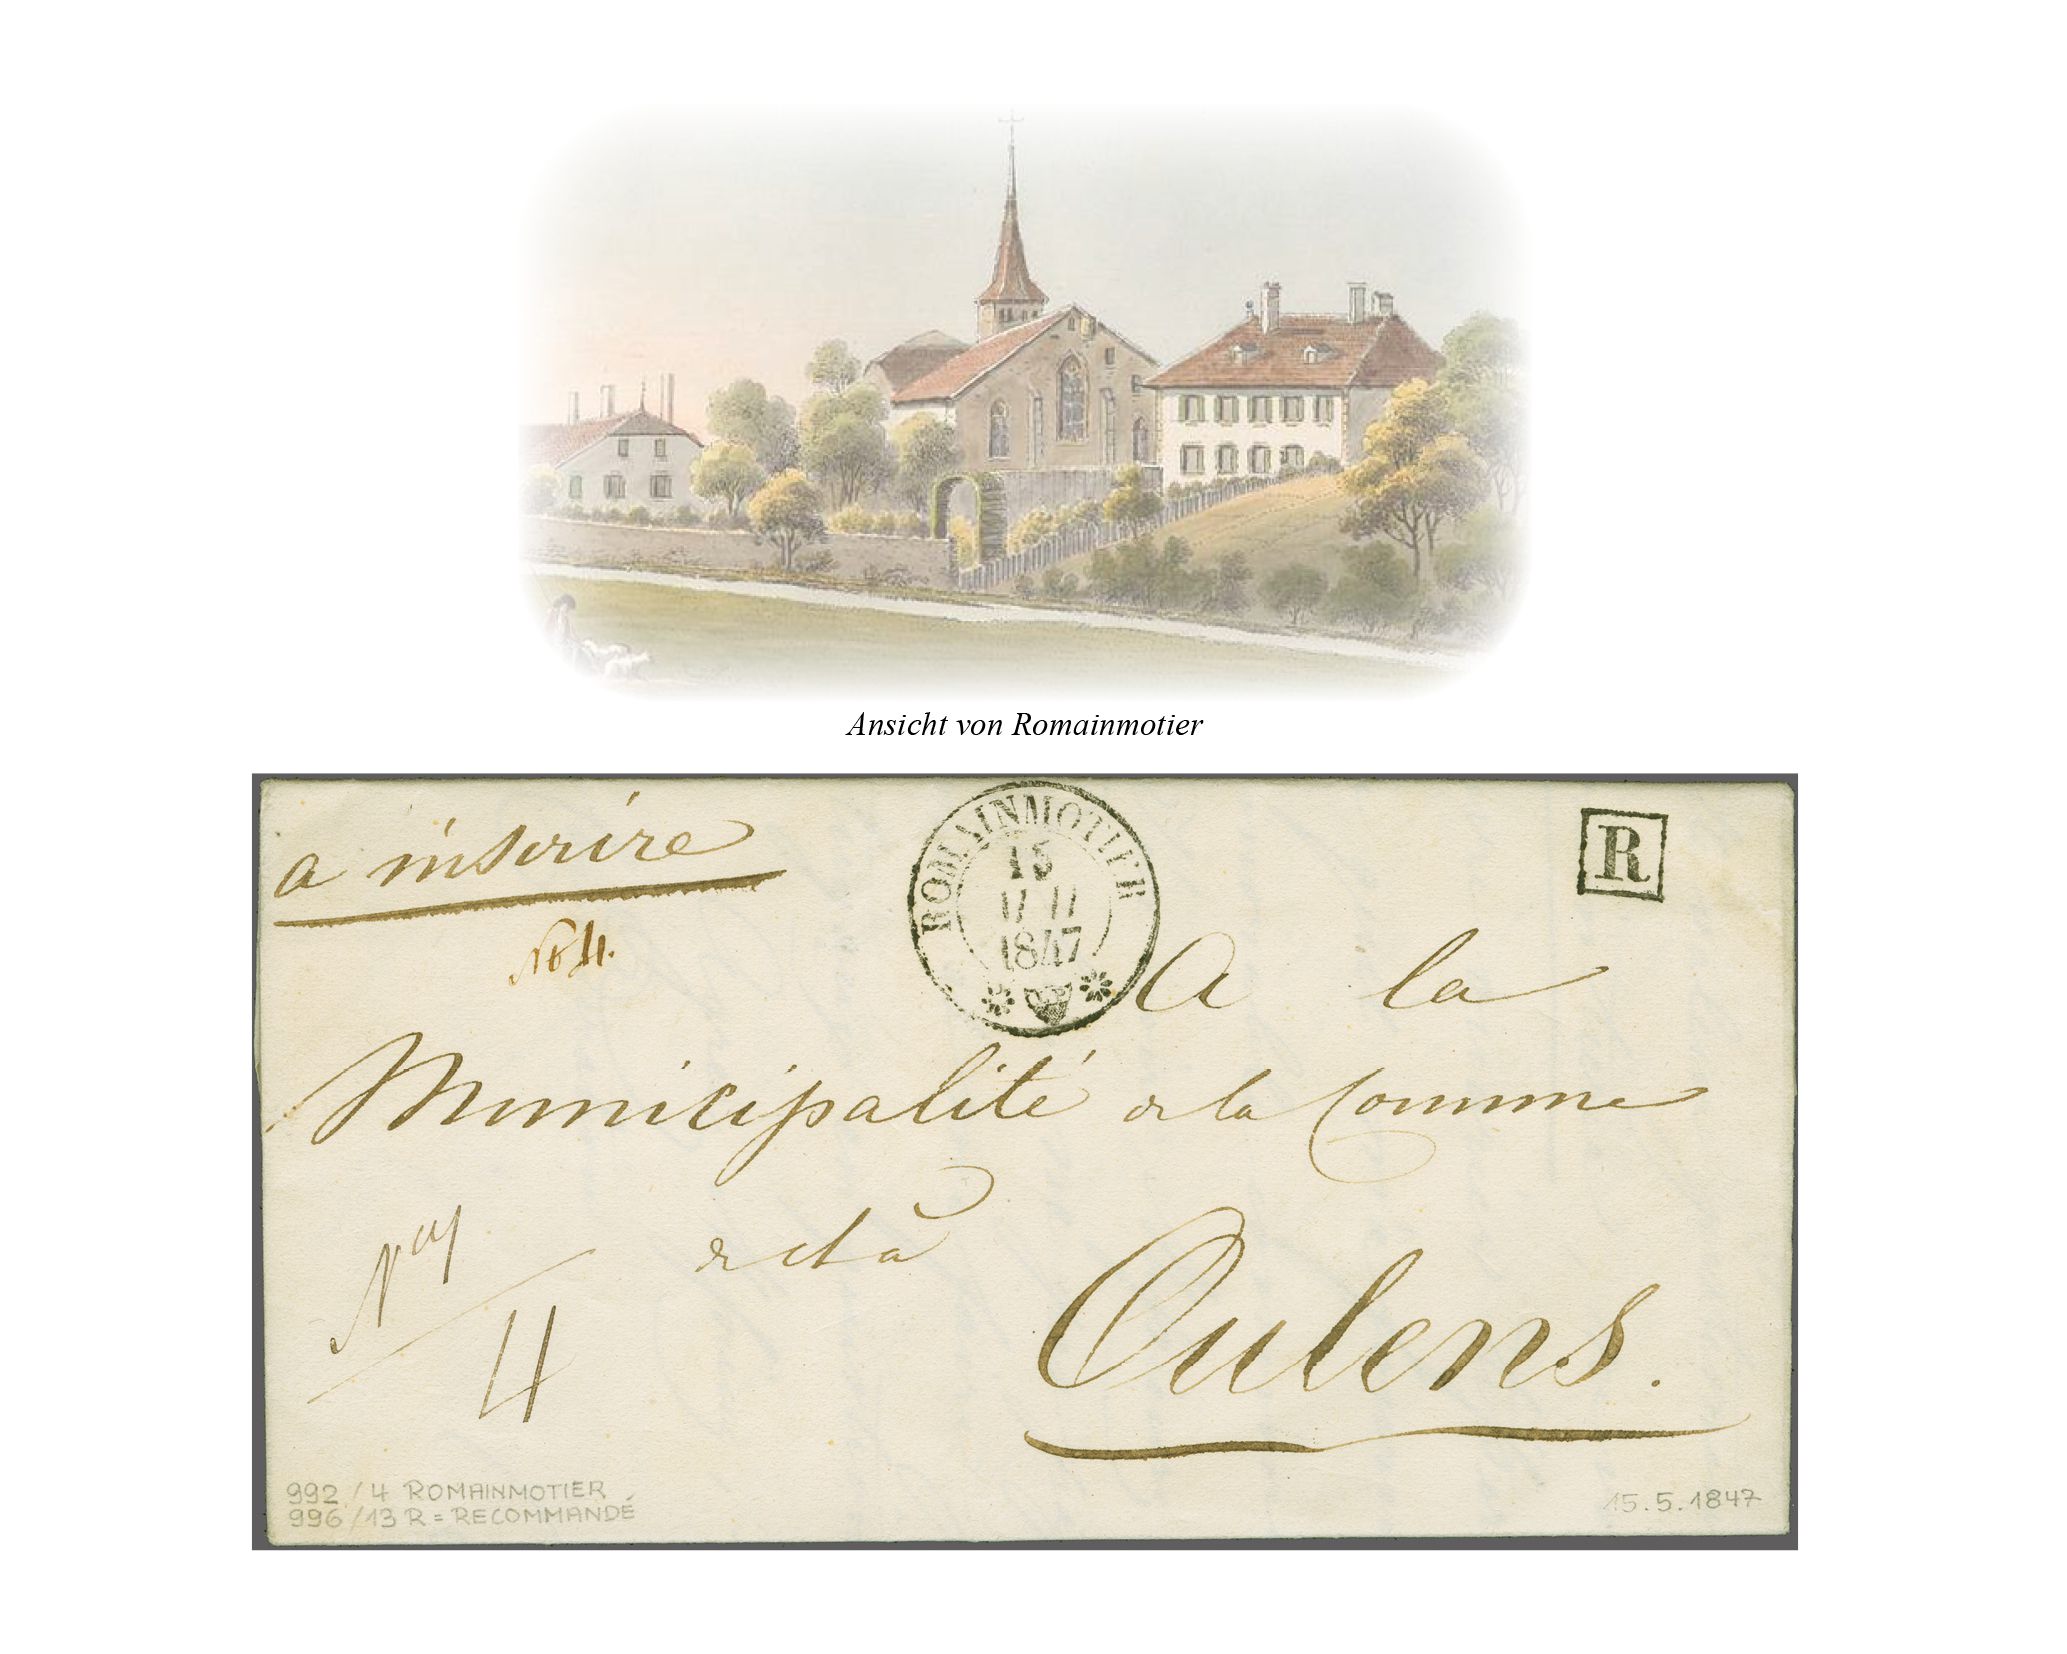 Ansicht von Romainmotier
a inscrire
ROMAINMOTIER
15
1847
R
No 4.
A la
Municipalité de la Commune
de et à
Oulens.
4
992/4 ROMAINMOTIER
996/13 R = RECOMMANDÉ
15.5.1847